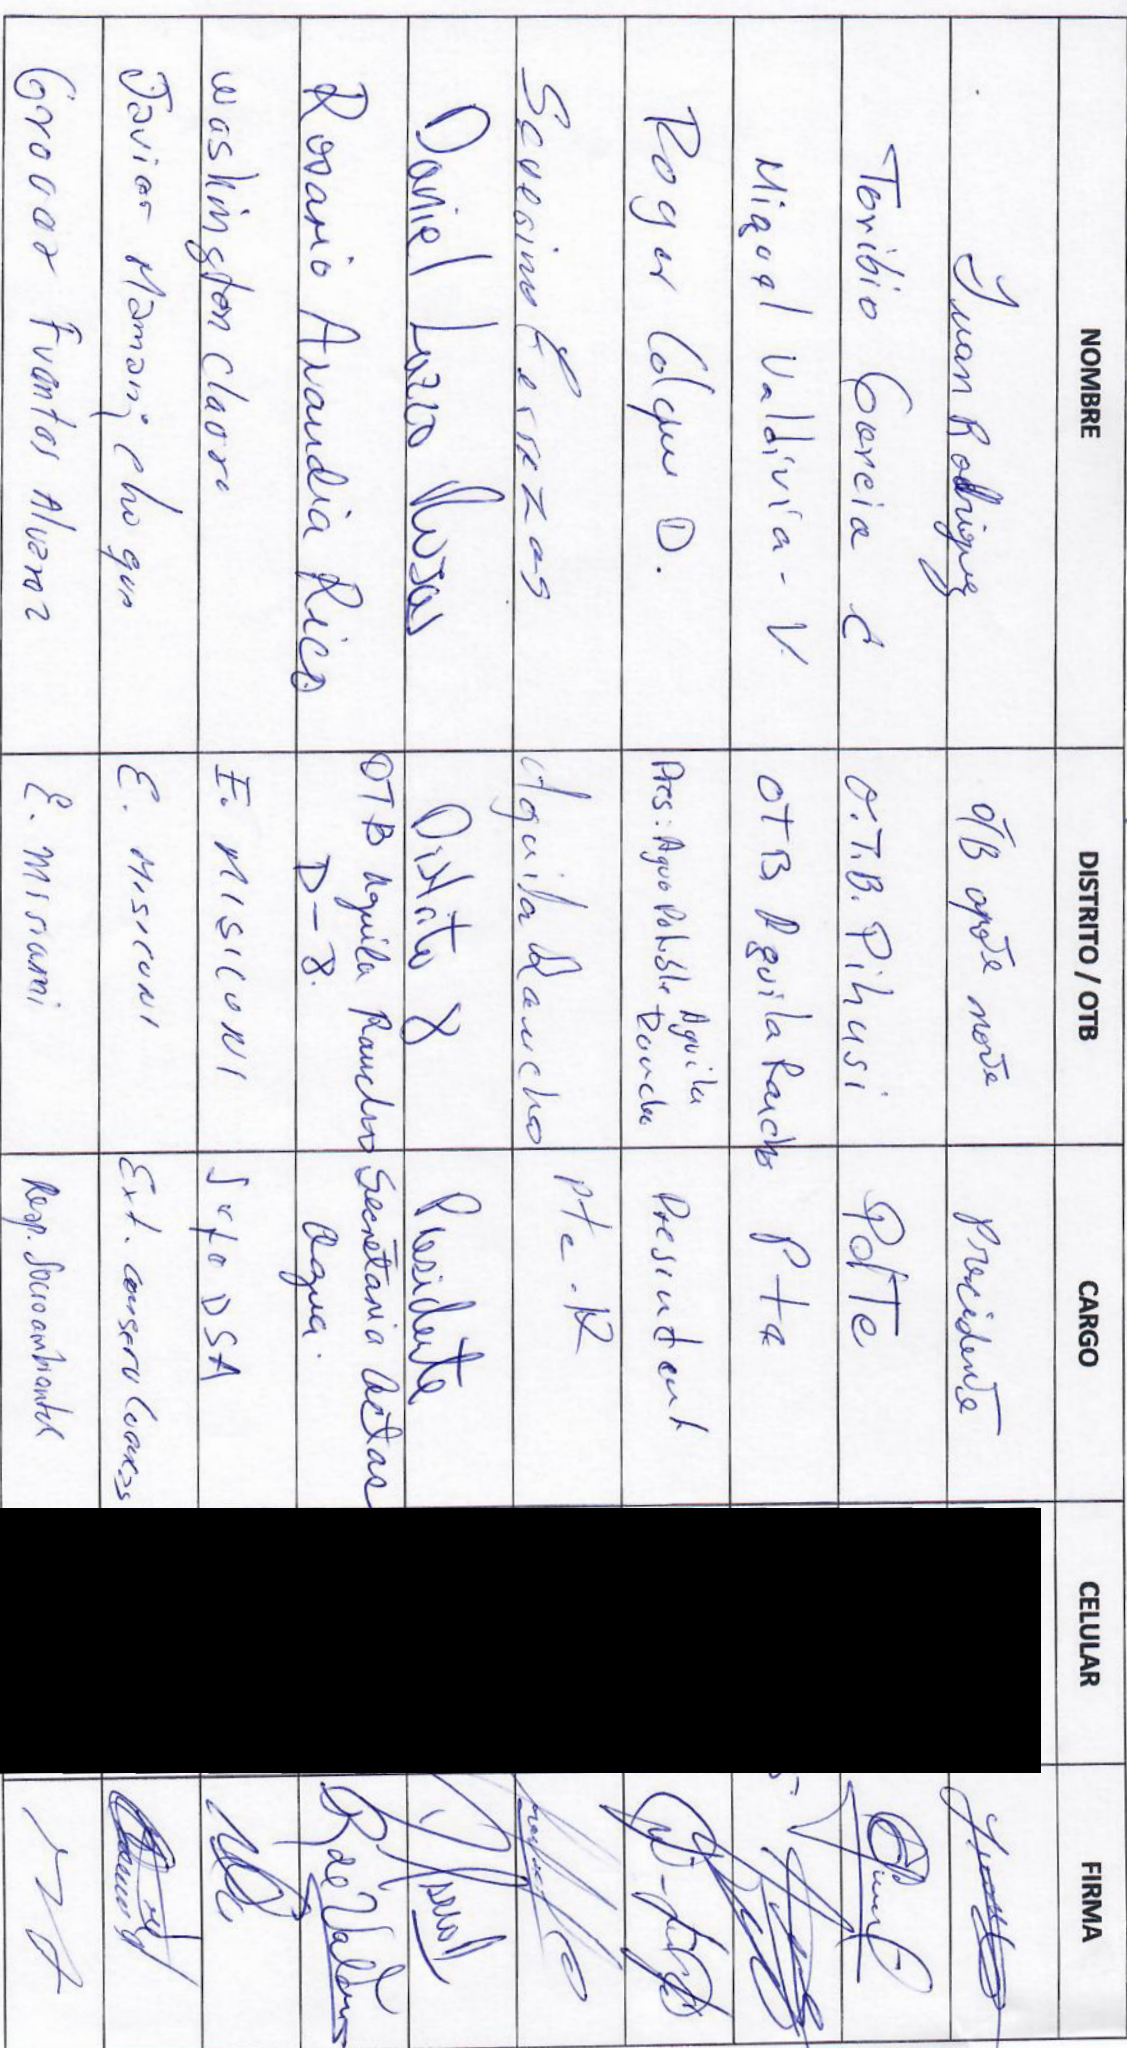 NOMBRE DISTRITO / OTB CARGO CELULAR FIRMA
Juan Rodriguez OTB norte Precidente
Toribio Garcia C O.T.B. Pihusi PdTe
Miguel Valdivia - V. OTB Aguila Rancho Pte
Roger Colque D. Pres: Agua Potable Aguila Rancho President
Severino Aguila Rancho pte.
Daniel Lazo Rojas Distrito 8 Presidente
Rosario Arandia Rico OTB Aguila Rancho D-8. Secretaria Actas Agua.
Washington Claore E. MISICUNI Jefe DSA
Javier Mamani Choque E. MISICUNI Ext. Conserv Cuencas
Grover Fuentes Alvarez E. Misicuni Resp. Socioambiental